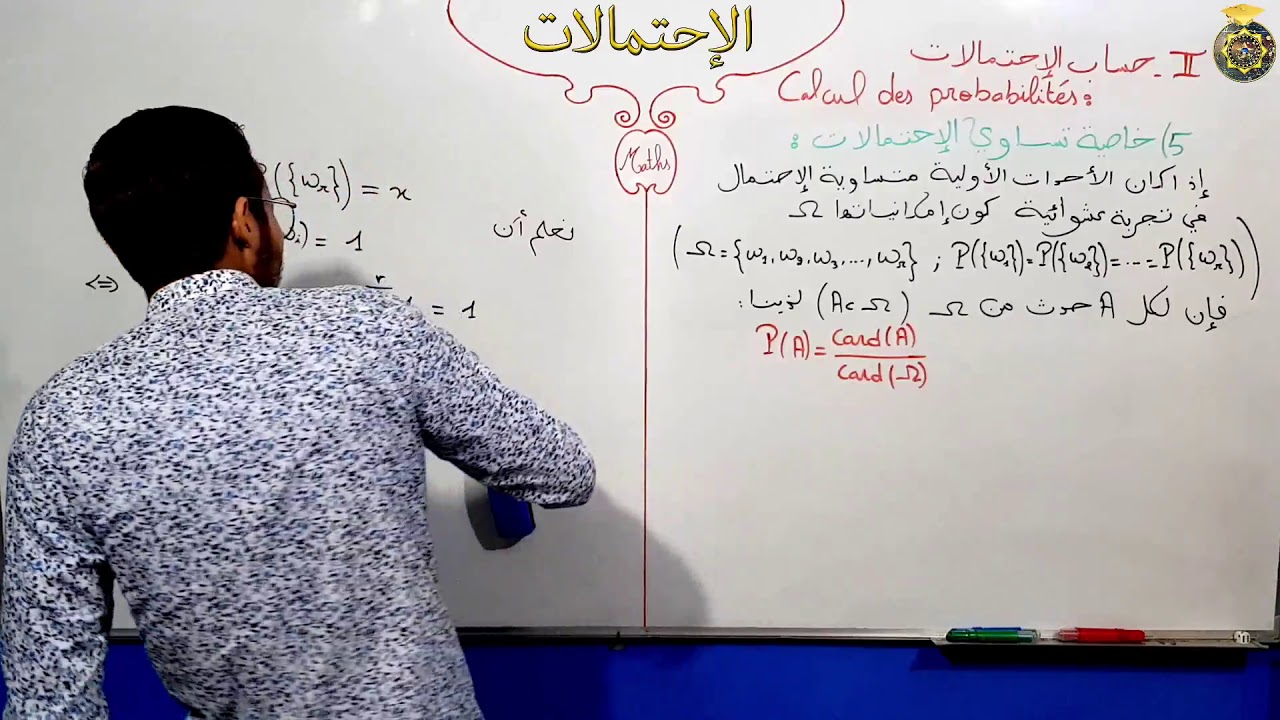 الإحتمالات
II - حساب الإحتمالات
Calcul des probabilités :
5) خاصية تساوي الإحتمالات :
إذا كان الأحداث الأولية متساوية الإحتمال
في تجربة عشوائية كون إمكانياتها Ω
(Ω = {ω₁, ω₂, ω₃, ..., ωₙ} ; P({ω₁}) = P({ω₂}) = ... = P({ωₙ}))
فإن لكل A حدث من Ω (A ⊂ Ω) لدينا :
P(A) = card(A) / card(Ω)
Maths
({ωₙ}) = x
نعلم أن
) = 1
⇔ = 1